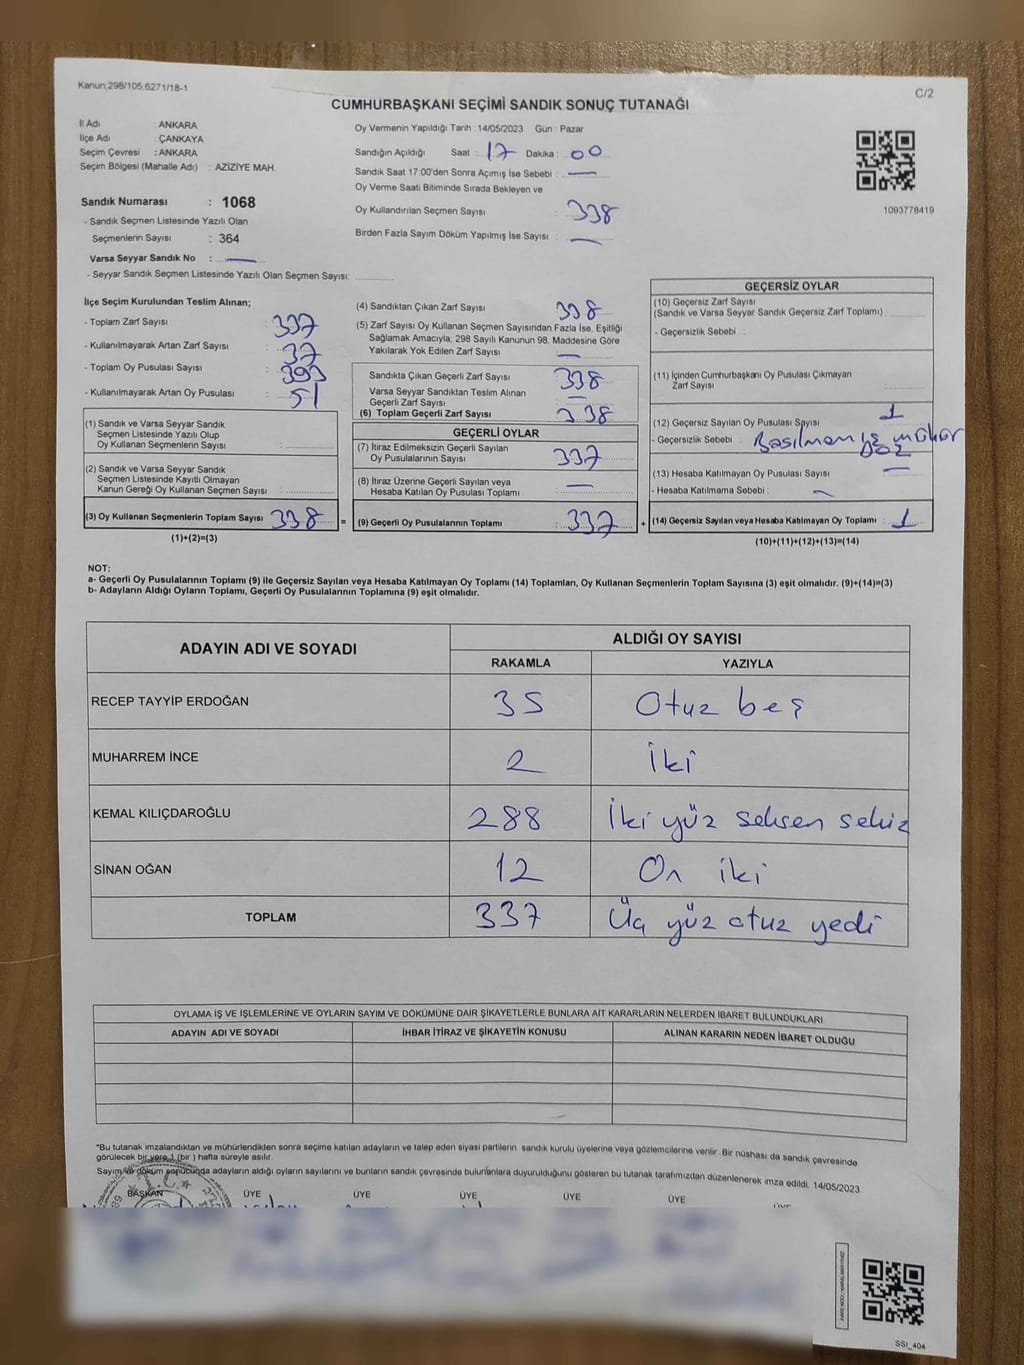 Kanun:298/105.6271/18-1
C/2
CUMHURBAŞKANI SEÇİMİ SANDIK SONUÇ TUTANAĞI
İl Adı : ANKARA
İlçe Adı : ÇANKAYA
Seçim Çevresi : ANKARA
Seçim Bölgesi (Mahalle Adı) : AZİZİYE MAH.
Sandık Numarası : 1068
- Sandık Seçmen Listesinde Yazılı Olan
Seçmenlerin Sayısı : 364
Varsa Seyyar Sandık No :
- Seyyar Sandık Seçmen Listesinde Yazılı Olan Seçmen Sayısı:
Oy Vermenin Yapıldığı Tarih : 14/05/2023 Gün : Pazar
Sandığın Açıldığı Saat : 17 Dakika : 00
Sandık Saat 17:00'den Sonra Açımış İse Sebebi : —
Oy Verme Saati Bitiminde Sırada Bekleyen ve
Oy Kullandırılan Seçmen Sayısı : 338
Birden Fazla Sayım Döküm Yapılmış İse Sayısı : —
1093778419
İlçe Seçim Kurulundan Teslim Alınan;
- Toplam Zarf Sayısı : 337
- Kullanılmayarak Artan Zarf Sayısı : 37
- Toplam Oy Pusulası Sayısı :
- Kullanılmayarak Artan Oy Pusulası : 51
(1) Sandık ve Varsa Seyyar Sandık
Seçmen Listesinde Yazılı Olup
Oy Kullanan Seçmenlerin Sayısı :
(2) Sandık ve Varsa Seyyar Sandık
Seçmen Listesinde Kayıtlı Olmayan
Kanun Gereği Oy Kullanan Seçmen Sayısı :
(3) Oy Kullanan Seçmenlerin Toplam Sayısı : 338 =
(1)+(2)=(3)
(4) Sandıktan Çıkan Zarf Sayısı : 338
(5) Zarf Sayısı Oy Kullanan Seçmen Sayısından Fazla İse, Eşitliği
Sağlamak Amacıyla, 298 Sayılı Kanunun 98. Maddesine Göre
Yakılarak Yok Edilen Zarf Sayısı : —
Sandıkta Çıkan Geçerli Zarf Sayısı : 338
Varsa Seyyar Sandıktan Teslim Alınan
Geçerli Zarf Sayısı : —
(6) Toplam Geçerli Zarf Sayısı : 338
GEÇERLİ OYLAR
(7) İtiraz Edilmeksizin Geçerli Sayılan
Oy Pusulalarının Sayısı : 337
(8) İtiraz Üzerine Geçerli Sayılan veya
Hesaba Katılan Oy Pusulası Toplamı : —
(9) Geçerli Oy Pusulalarının Toplamı : 337 +
GEÇERSİZ OYLAR
(10) Geçersiz Zarf Sayısı
(Sandık ve Varsa Seyyar Sandık Geçersiz Zarf Toplamı) :
- Geçersizlik Sebebi :
(11) İçinden Cumhurbaşkanı Oy Pusulası Çıkmayan
Zarf Sayısı :
(12) Geçersiz Sayılan Oy Pusulası Sayısı : 1
- Geçersizlik Sebebi :
(13) Hesaba Katılmayan Oy Pusulası Sayısı : —
- Hesaba Katılmama Sebebi : —
(14) Geçersiz Sayılan veya Hesaba Katılmayan Oy Toplamı : 1
(10)+(11)+(12)+(13)=(14)
NOT:
a- Geçerli Oy Pusulalarının Toplamı (9) ile Geçersiz Sayılan veya Hesaba Katılmayan Oy Toplamı (14) Toplamları, Oy Kullanan Seçmenlerin Toplam Sayısına (3) eşit olmalıdır. (9)+(14)=(3)
b- Adayların Aldığı Oyların Toplamı, Geçerli Oy Pusulalarının Toplamına (9) eşit olmalıdır.
ADAYIN ADI VE SOYADI
ALDIĞI OY SAYISI
RAKAMLA YAZIYLA
RECEP TAYYİP ERDOĞAN 35 Otuz beş
MUHARREM İNCE 2 İki
KEMAL KILIÇDAROĞLU 288 İki yüz seksen sekiz
SİNAN OĞAN 12 On iki
TOPLAM 337 Üç yüz otuz yedi
OYLAMA İŞ VE İŞLEMLERİNE VE OYLARIN SAYIM VE DÖKÜMÜNE DAİR ŞİKAYETLERLE BUNLARA AİT KARARLARIN NELERDEN İBARET BULUNDUKLARI
ADAYIN ADI VE SOYADI İHBAR İTİRAZ VE ŞİKAYETİN KONUSU ALINAN KARARIN NEDEN İBARET OLDUĞU
*Bu tutanak imzalandıktan ve mühürlendikten sonra seçime katılan adayların ve talep eden siyasi partilerin sandık kurulu üyelerine veya gözlemcilerine verilir. Bir nüshası da sandık çevresinde
görülecek bir yere 1 (bir) hafta süreyle asılır.
Sayım ve döküm sonucunda adayların aldığı oyların sayılarını ve bunların sandık çevresinde bulunanlara duyurulduğunu gösteren bu tutanak tarafımızdan düzenlenerek imza edildi. 14/05/2023
BAŞKAN ÜYE ÜYE ÜYE ÜYE ÜYE ÜYE
T.C.
SSİ_404